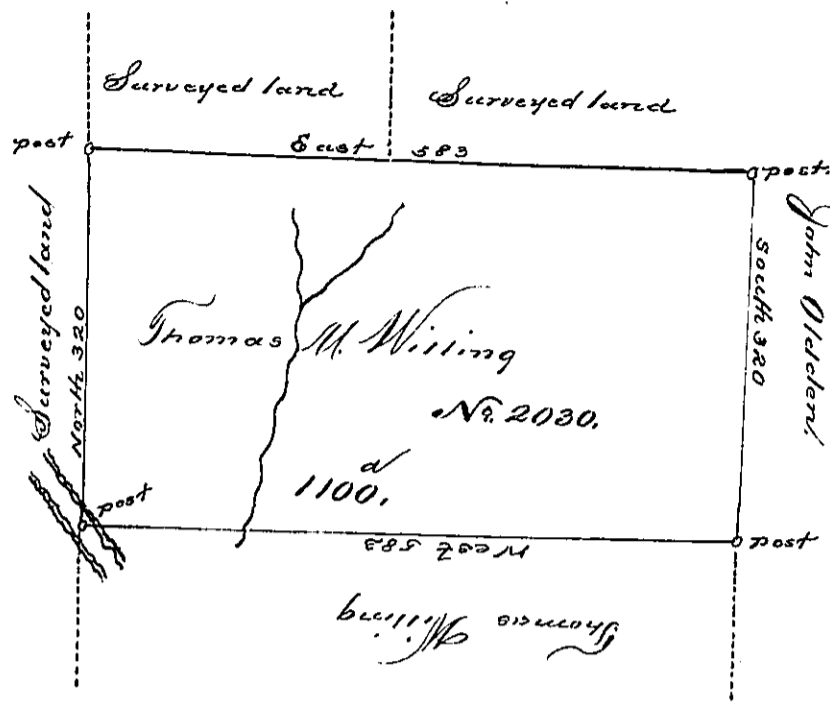 Surveyed land
Surveyed land
post
East 583
post.
Surveyed land
North 320
South 320
John Olden.
Thomas M. Willing
No. 2030.
1100. a
post
West 583
post
Thomas Willing